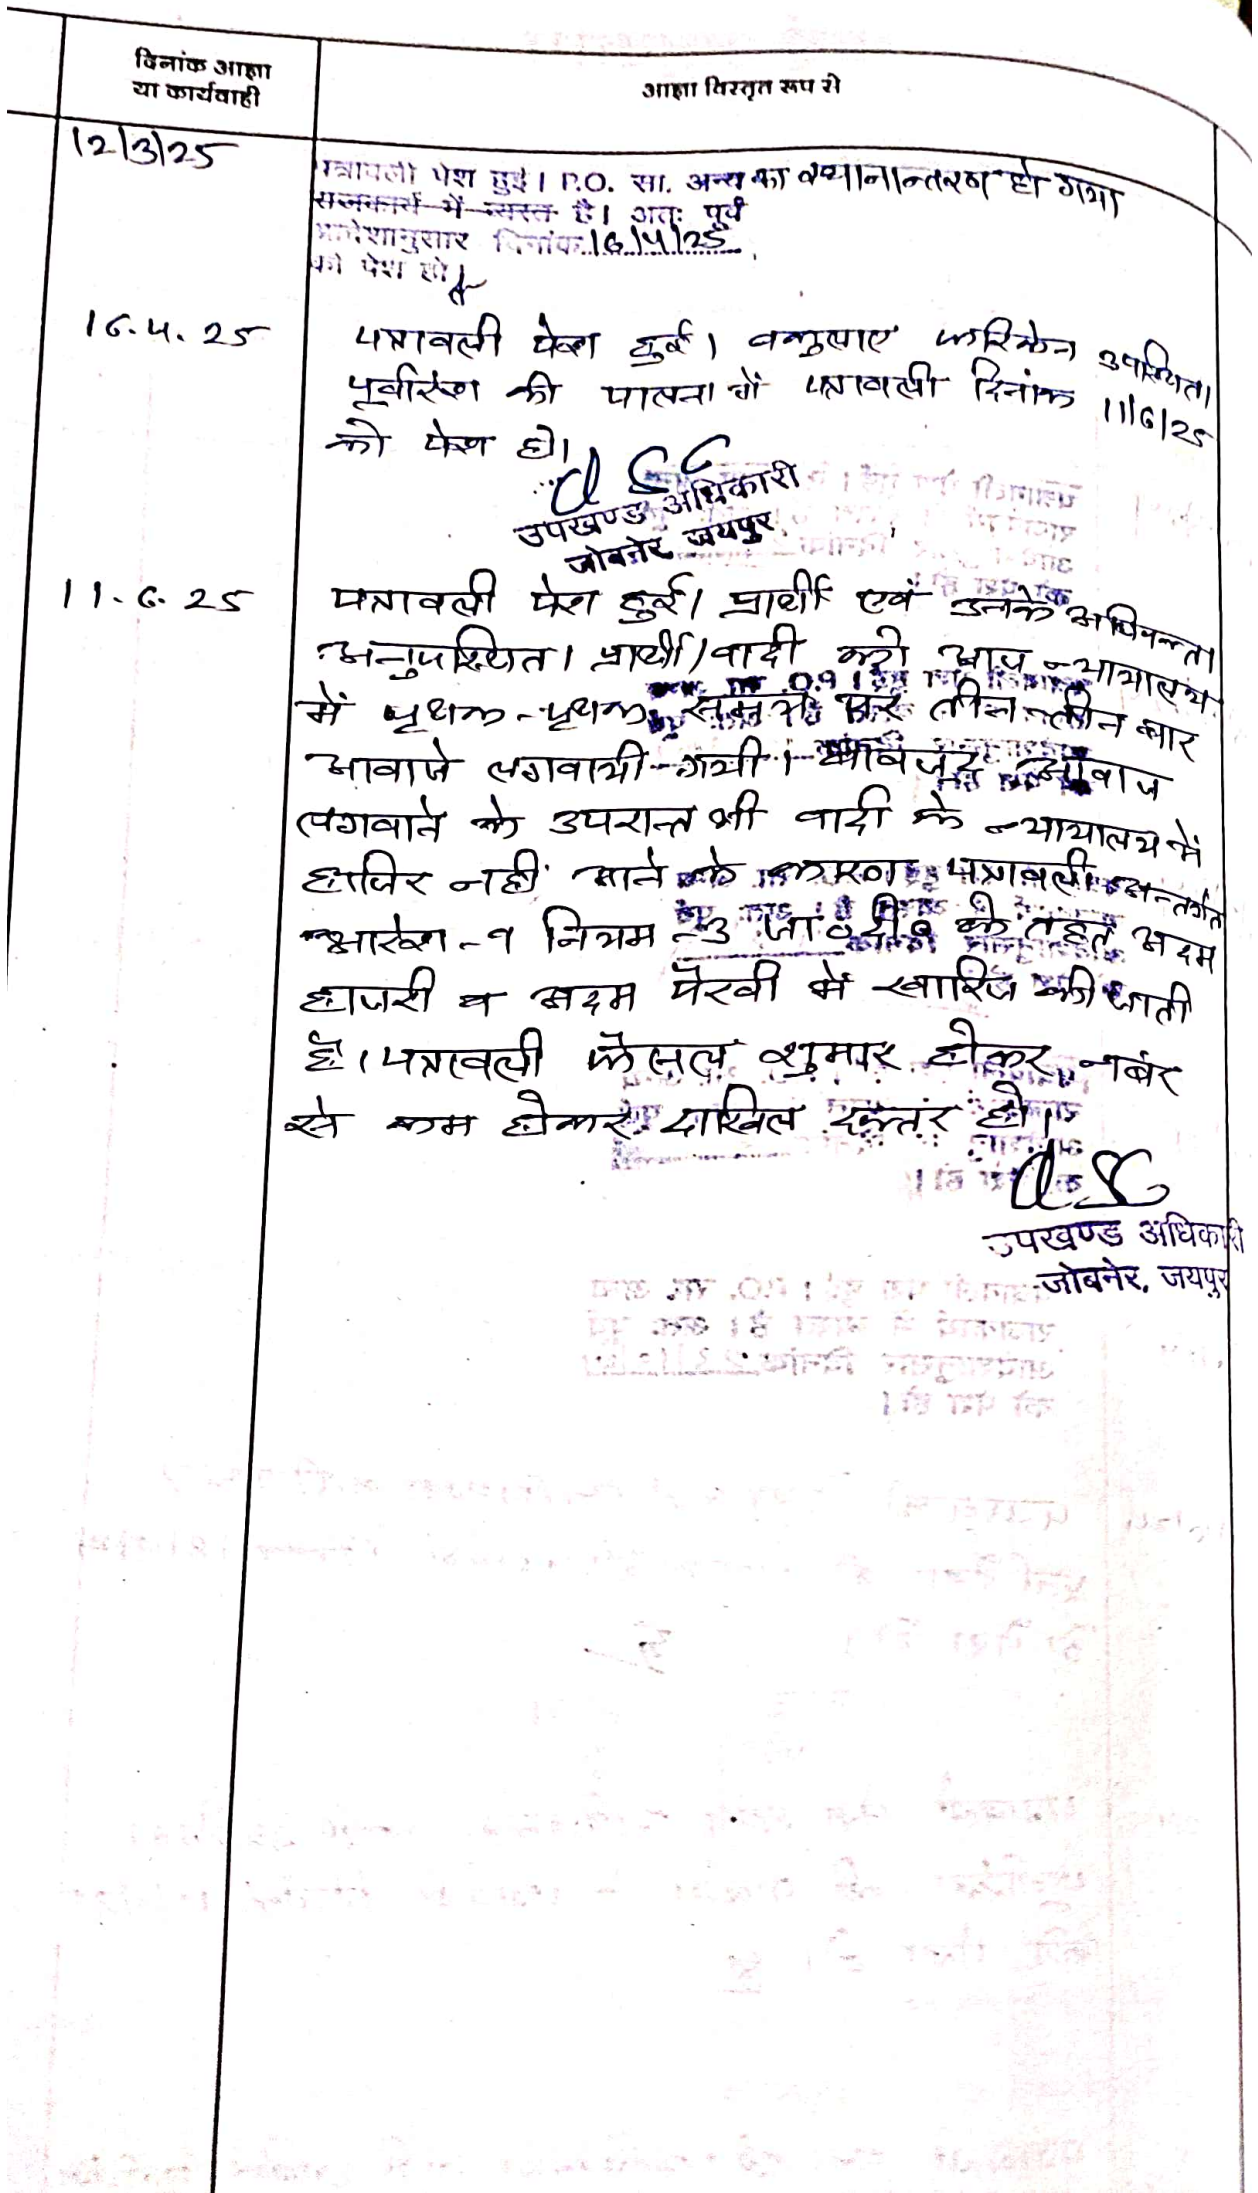 दिनांक आज्ञा
या कार्यवाही
आज्ञा विस्तृत रूप से
12/3/25
पत्रावली पेश हुई। P.O. सा. अन्य का स्थानान्तरण हो गया
राजकार्य में व्यस्त है। अतः पूर्व
आदेशानुसार दिनांक 16/4/25
को पेश हो।
16.4.25
पत्रावली पेश हुई। वकुलाए फरिकेन उपस्थित।
पूर्वादेश की पालना में पत्रावली दिनांक 11/6/25
को पेश हो।
उपखण्ड अधिकारी
जोबनेर जयपुर
11.6.25
पत्रावली पेश हुई। प्रार्थी एवं उनके अधिवक्ता
अनुपस्थित। प्रार्थी/वादी को आज न्यायालय
में पृथक-पृथक समय पर तीन-तीन बार
आवाजे लगवायी गयी। बावजूद आवाज
लगवाने के उपरान्त भी वादी के न्यायालय में
हाजिर नहीं आने के कारण पत्रावली अन्तर्गत
आदेश-9 नियम-3 जा०दी० के तहत अदम
हाजरी व अदम पैरवी में खारिज की जाती
है। पत्रावली फैसल शुमार होकर नबंर
से कम होकर दाखिल दफ्तर हो।
उपखण्ड अधिकारी
जोबनेर, जयपुर